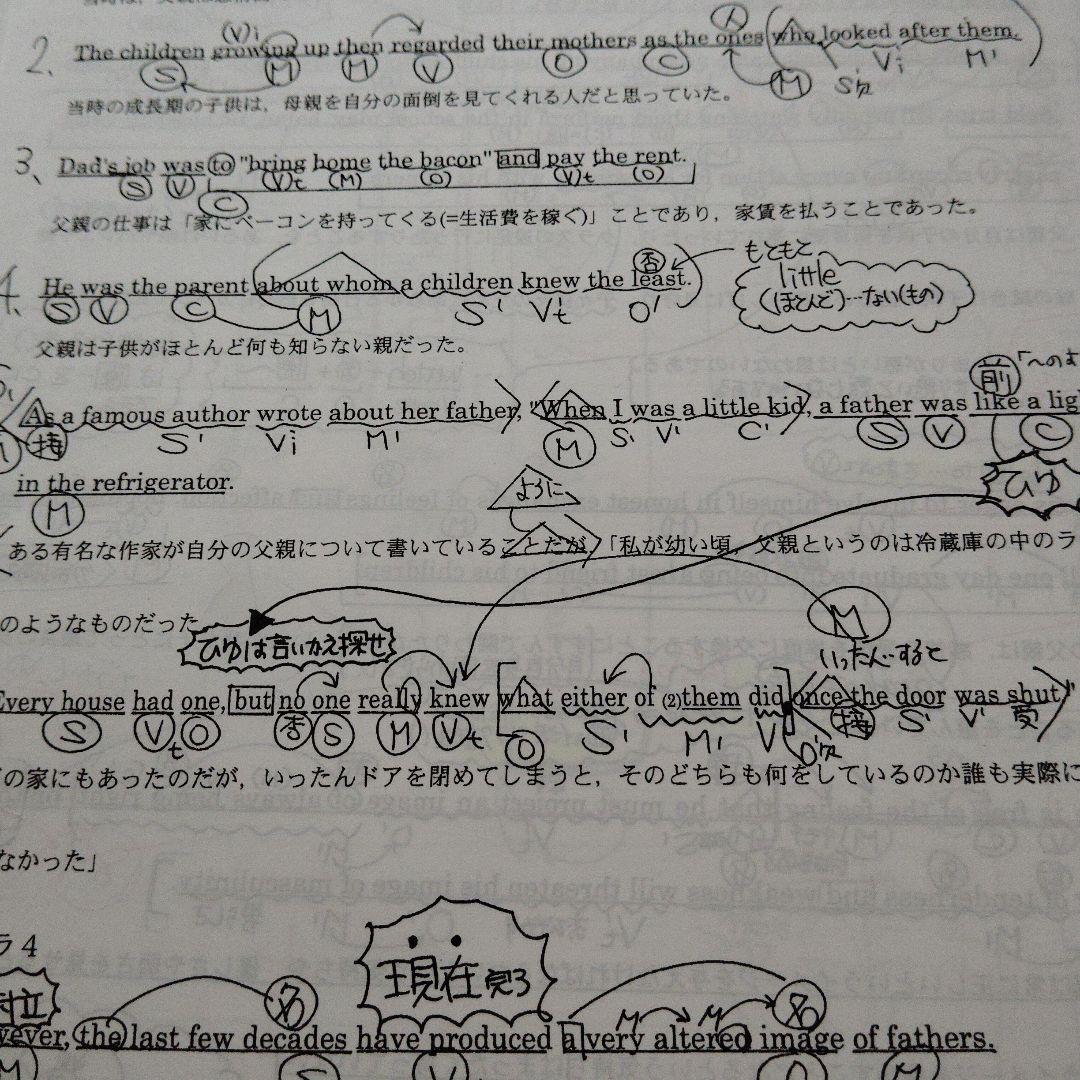 (V)i
2. The children growing up then regarded their mothers as the ones (who looked after them.)
S M M V O C M S' Vi M'
当時の成長期の子供は，母親を自分の面倒を見てくれる人だと思っていた。
3、Dad's job was to "bring home the bacon" and pay the rent.
S V (V)t (M) (O) (V)t (O)
C
父親の仕事は「家にベーコンを持ってくる(=生活費を稼ぐ)」ことであり，家賃を払うことであった。
否 もともと
little
4. He was the parent about whom a children knew the least.
(ほとんど)…ない(もの)
S V C M S' Vt O'
父親は子供がほとんど何も知らない親だった。
前 「〜のよ
As a famous author wrote about her father, "When I was a little kid, a father was like a lig
接 S' Vi M' M S' V' C' S V C
in the refrigerator.
M
ように ひゆ
ある有名な作家が自分の父親について書いていることだが「私が幼い頃，父親というのは冷蔵庫の中のラ
M
のようなものだった
ひゆは言いかえ探せ いったん…すると
Every house had one, but no one really knew what either of (2)them did once the door was shut,"
S Vt O 否 S M Vt O S' M' V 接 S' V' 受
の家にもあったのだが，いったんドアを閉めてしまうと，そのどちらも何をしているのか誰も実際に
なかった」
ラ4
現在完了
対立 名 M M 名
wever, the last few decades have produced a very altered image of fathers.
M S V O M